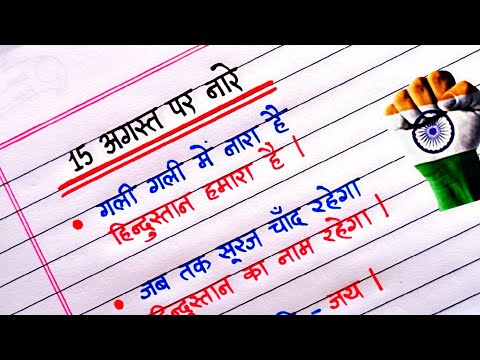 15 अगस्त पर नारे
• गली गली में नारा है
हिन्दुस्तान हमारा है ।
• जब तक सूरज चाँद रहेगा
हिन्दुस्तान का नाम रहेगा ।
- जय ।